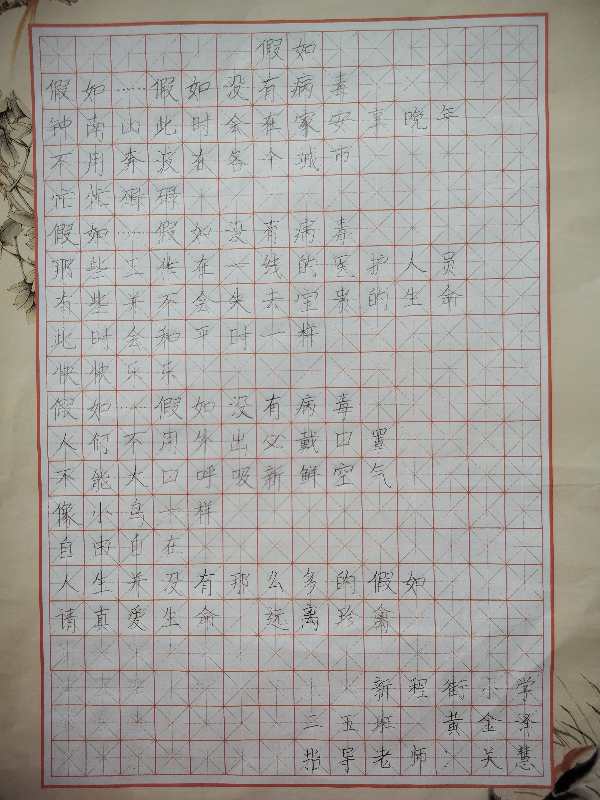 假如
假如……假如没有病毒
钟南山此时会在家安享晚年
不用奔波在各个城市
忙忙碌碌
假如……假如没有病毒
那些工作在一线的医护人员
有些并不会失去宝贵的生命
此时会和平时一样
快快乐乐
假如……假如没有病毒
人们不用外出必戴口罩
不能大口呼吸新鲜空气
像小鸟一样
自由自在
人生并没有那么多的假如
请真爱生命 远离珍禽
新程街小学
二五班 黄金泽
指导老师 关慧